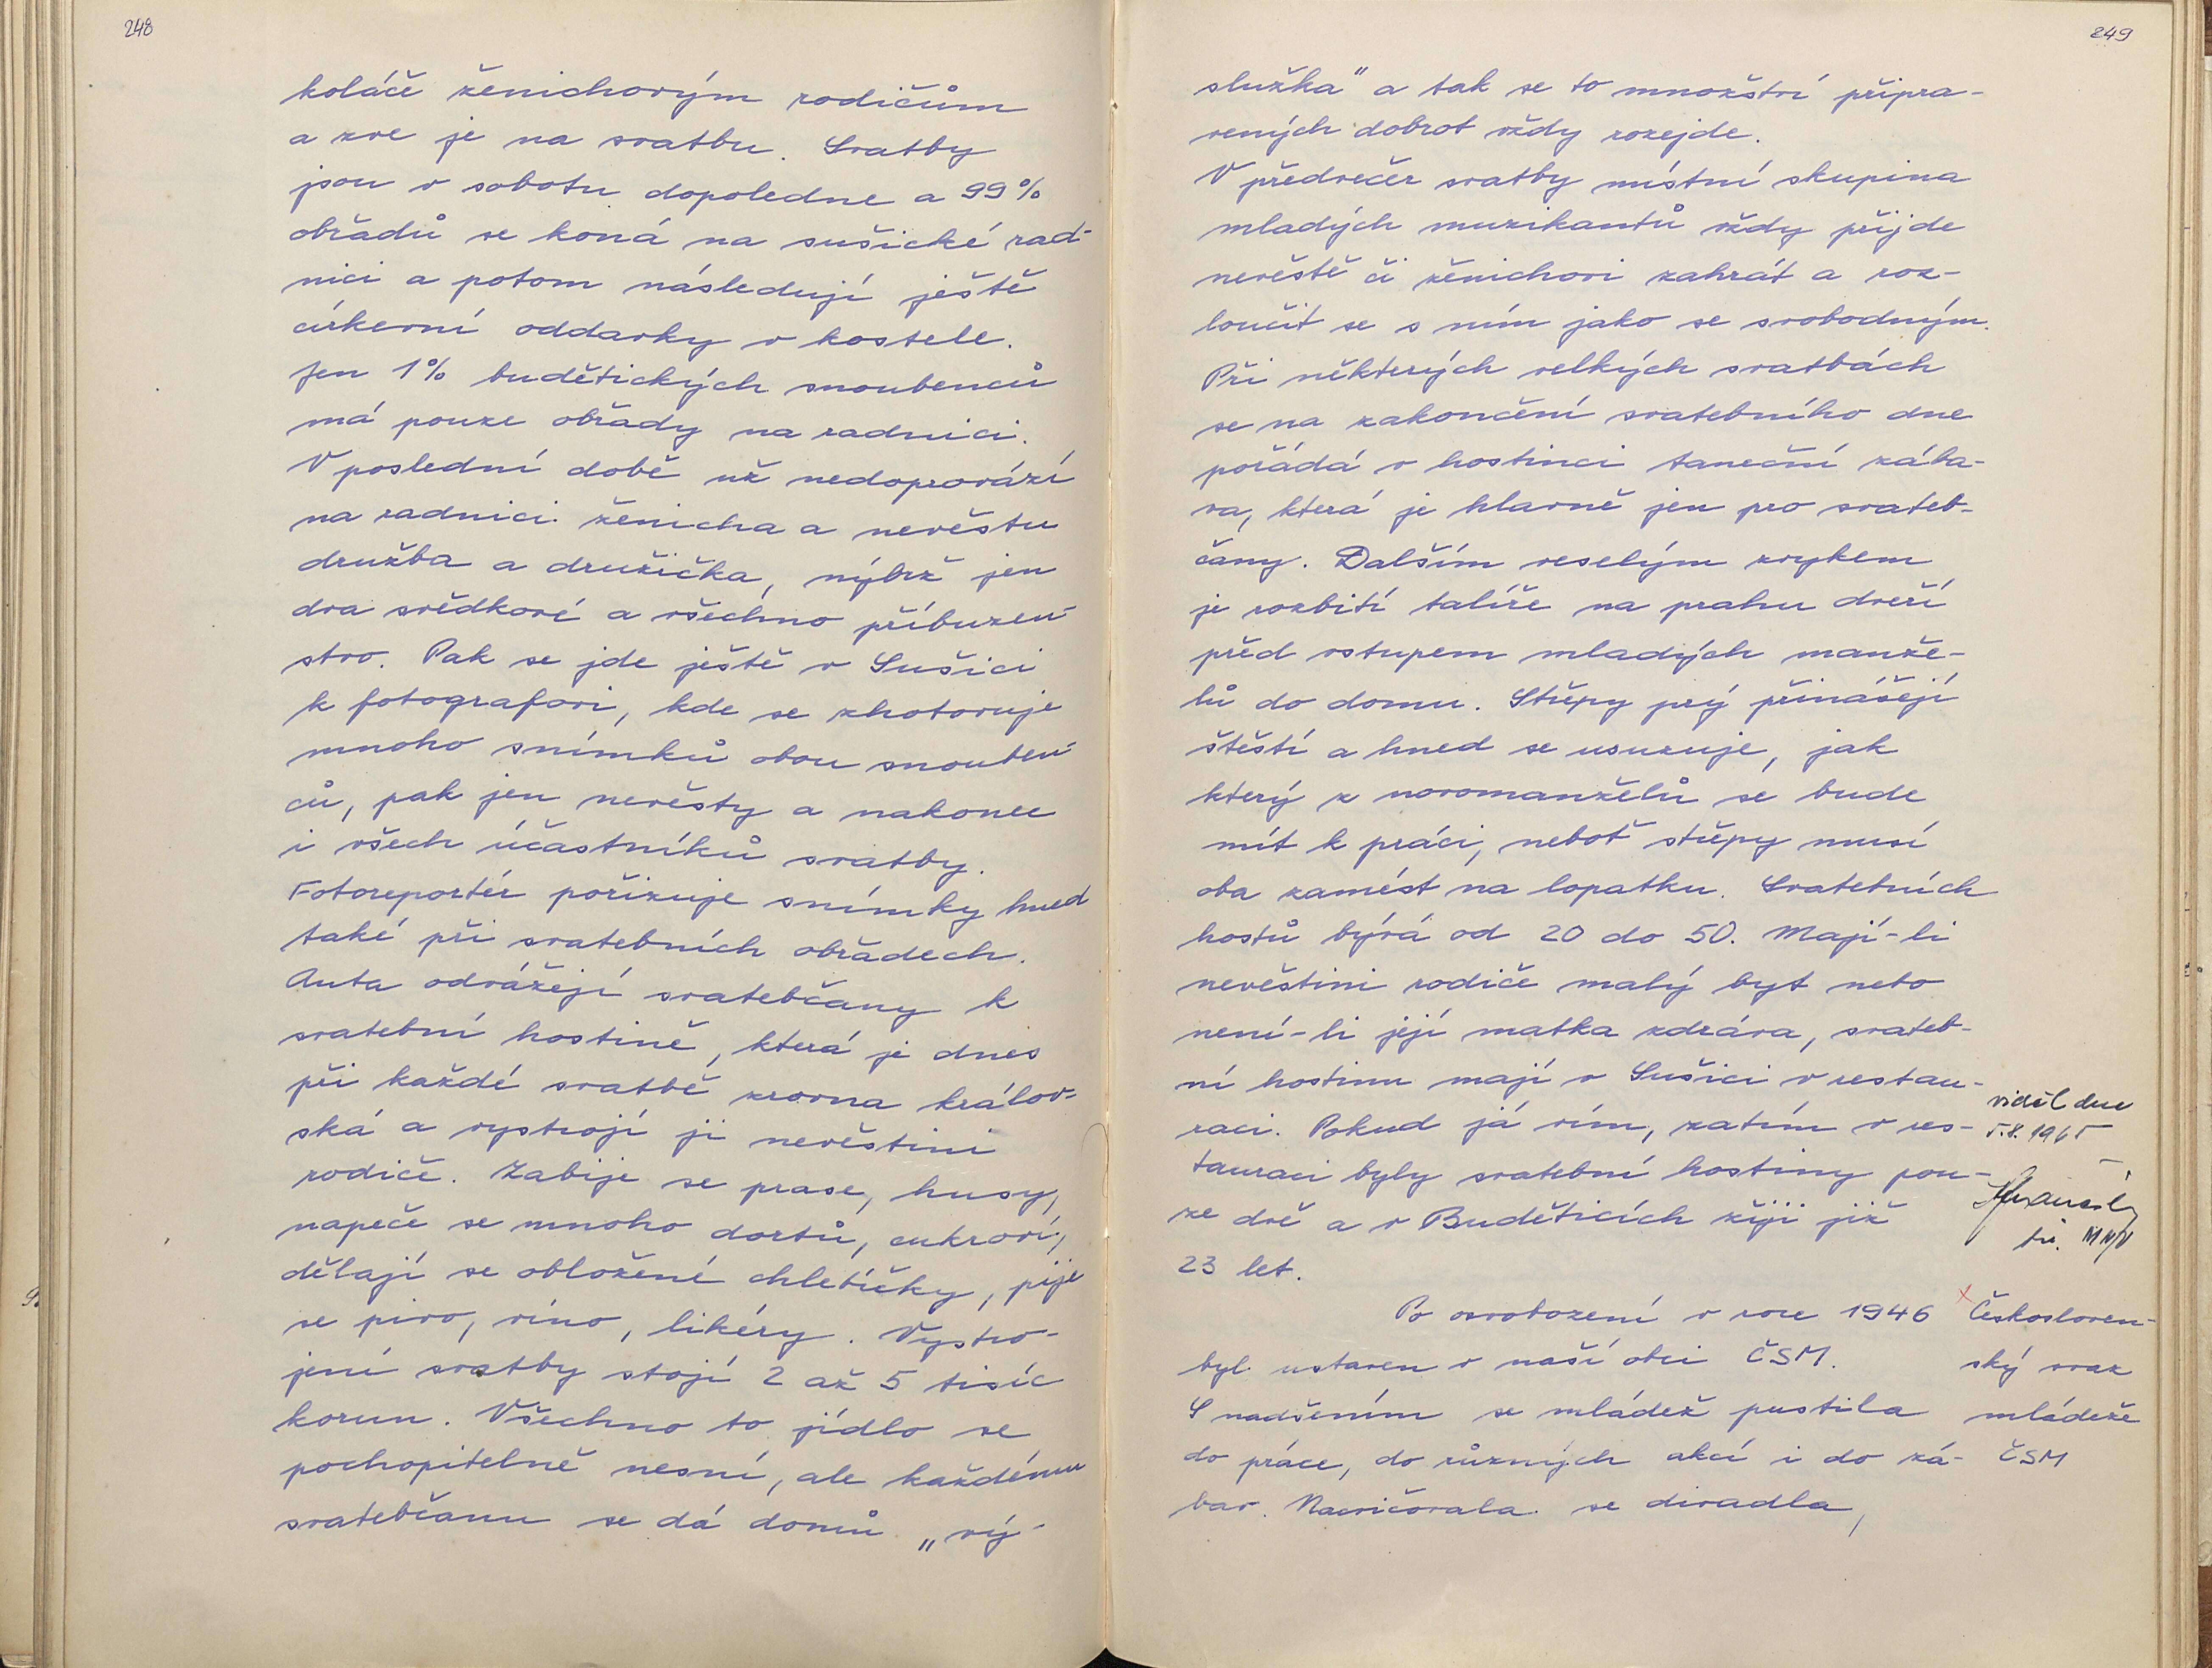 248
koláče ženichovým rodičům
a zve je na svatbu. Svatby
jsou v sobotu dopoledne a 99%
obřadů se koná na sušické rad-
nici a potom následují ještě
církevní oddavky v kostele.
Jen 1% budětických snoubenců
má pouze obřady na radnici.
V poslední době už nedoprovází
na radnici ženicha a nevěstu
družba a družička, nýbrž jen
dva svědkové a všechno příbuzen-
stvo. Pak se jde ještě v Sušici
k fotografovi, kde se zhotovuje
mnoho snímků obou snouben-
ců, pak jen nevěsty a nakonec
i všech účastníků svatby.
Fotoreportér pořizuje snímky hned
také při svatebních obřadech.
Auta odvážejí svatebčany k
svatební hostině, která je dnes
při každé svatbě zrovna králov-
ská a vystrojí ji nevěstini
rodiče. Zabije se prase, husy,
napeče se mnoho dortů, cukroví,
dělají se obložené chlebíčky, pije
se pivo, víno, likéry. Vystro-
jení svatby stojí 2 až 5 tisíc
korun. Všechno to jídlo se
pochopitelně nesní, ale každému
svatebčanu se dá domů „vý-
249
služka" a tak se to množství připra-
vených dobrot vždy rozejde.
V předvečer svatby místní skupina
mladých muzikantů vždy přijde
nevěstě či ženichovi zahrát a roz-
loučit se s ním jako se svobodným.
Při některých velkých svatbách
se na zakončení svatebního dne
pořádá v hostinci taneční zába-
va, která je hlavně jen pro svateb-
čany. Dalším veselým zvykem
je rozbití talíře na prahu dveří
před vstupem mladých manže-
lů do domu. Střepy prý přinášejí
štěstí a hned se usuzuje, jak
který z novomanželů se bude
mít k práci, neboť střepy musí
oba zamést na lopatku. Svatebních
hostů bývá od 20 do 50. Mají-li
nevěstini rodiče malý byt nebo
není-li její matka zdráva, svateb-
ní hostinu mají v Sušici v restau-
raci. Pokud já vím, zatím v res-
tauraci byly svatební hostiny pou-
ze dvě a v Buděticích žiji již
23 let.
viděl dne
5.8. 1965
MNV
Po osvobození v roce 1946
byl ustaven v naší obci ČSM.
S nadšením se mládež pustila
do práce, do různých akcí i do zá-
bav. Nacvičovala se divadla,
x Českosloven-
ský svaz
mládeže
ČSM